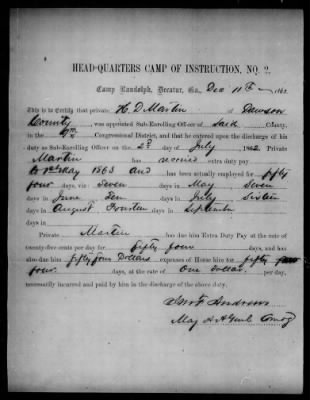 HEAD-QUARTERS CAMP OF INSTRUCTION, NO. 2,
Camp Randolph, Decatur, Ga., Dec 11th 186
This is to Certify that private H. D. Martin of Dawson
County, was appointed Sub-Enrolling Officer of Said County,
in the 9th Congressional District, and that he entered upon the discharge of his
duty as Sub-Enrolling Officer on the 2d day of July, 1862. Private
Martin has received extra duty pay
to 1st May 1863 and has been actually employed for fifty
four days, viz: Seven days in May, Seven
days in June, Ten days in July, Sixteen
days in August, Fourteen days in September
days in
Private Martin has due him Extra Duty Pay at the rate of
twenty-five cents per day for fifty four days, and has
also due him fifty four Dollars expenses of Horse hire for fifty
four. days, at the rate of One Dollar. per day,
necessarily incurred and paid by him in the discharge of the above duty.
Andrews
Maj Comdg